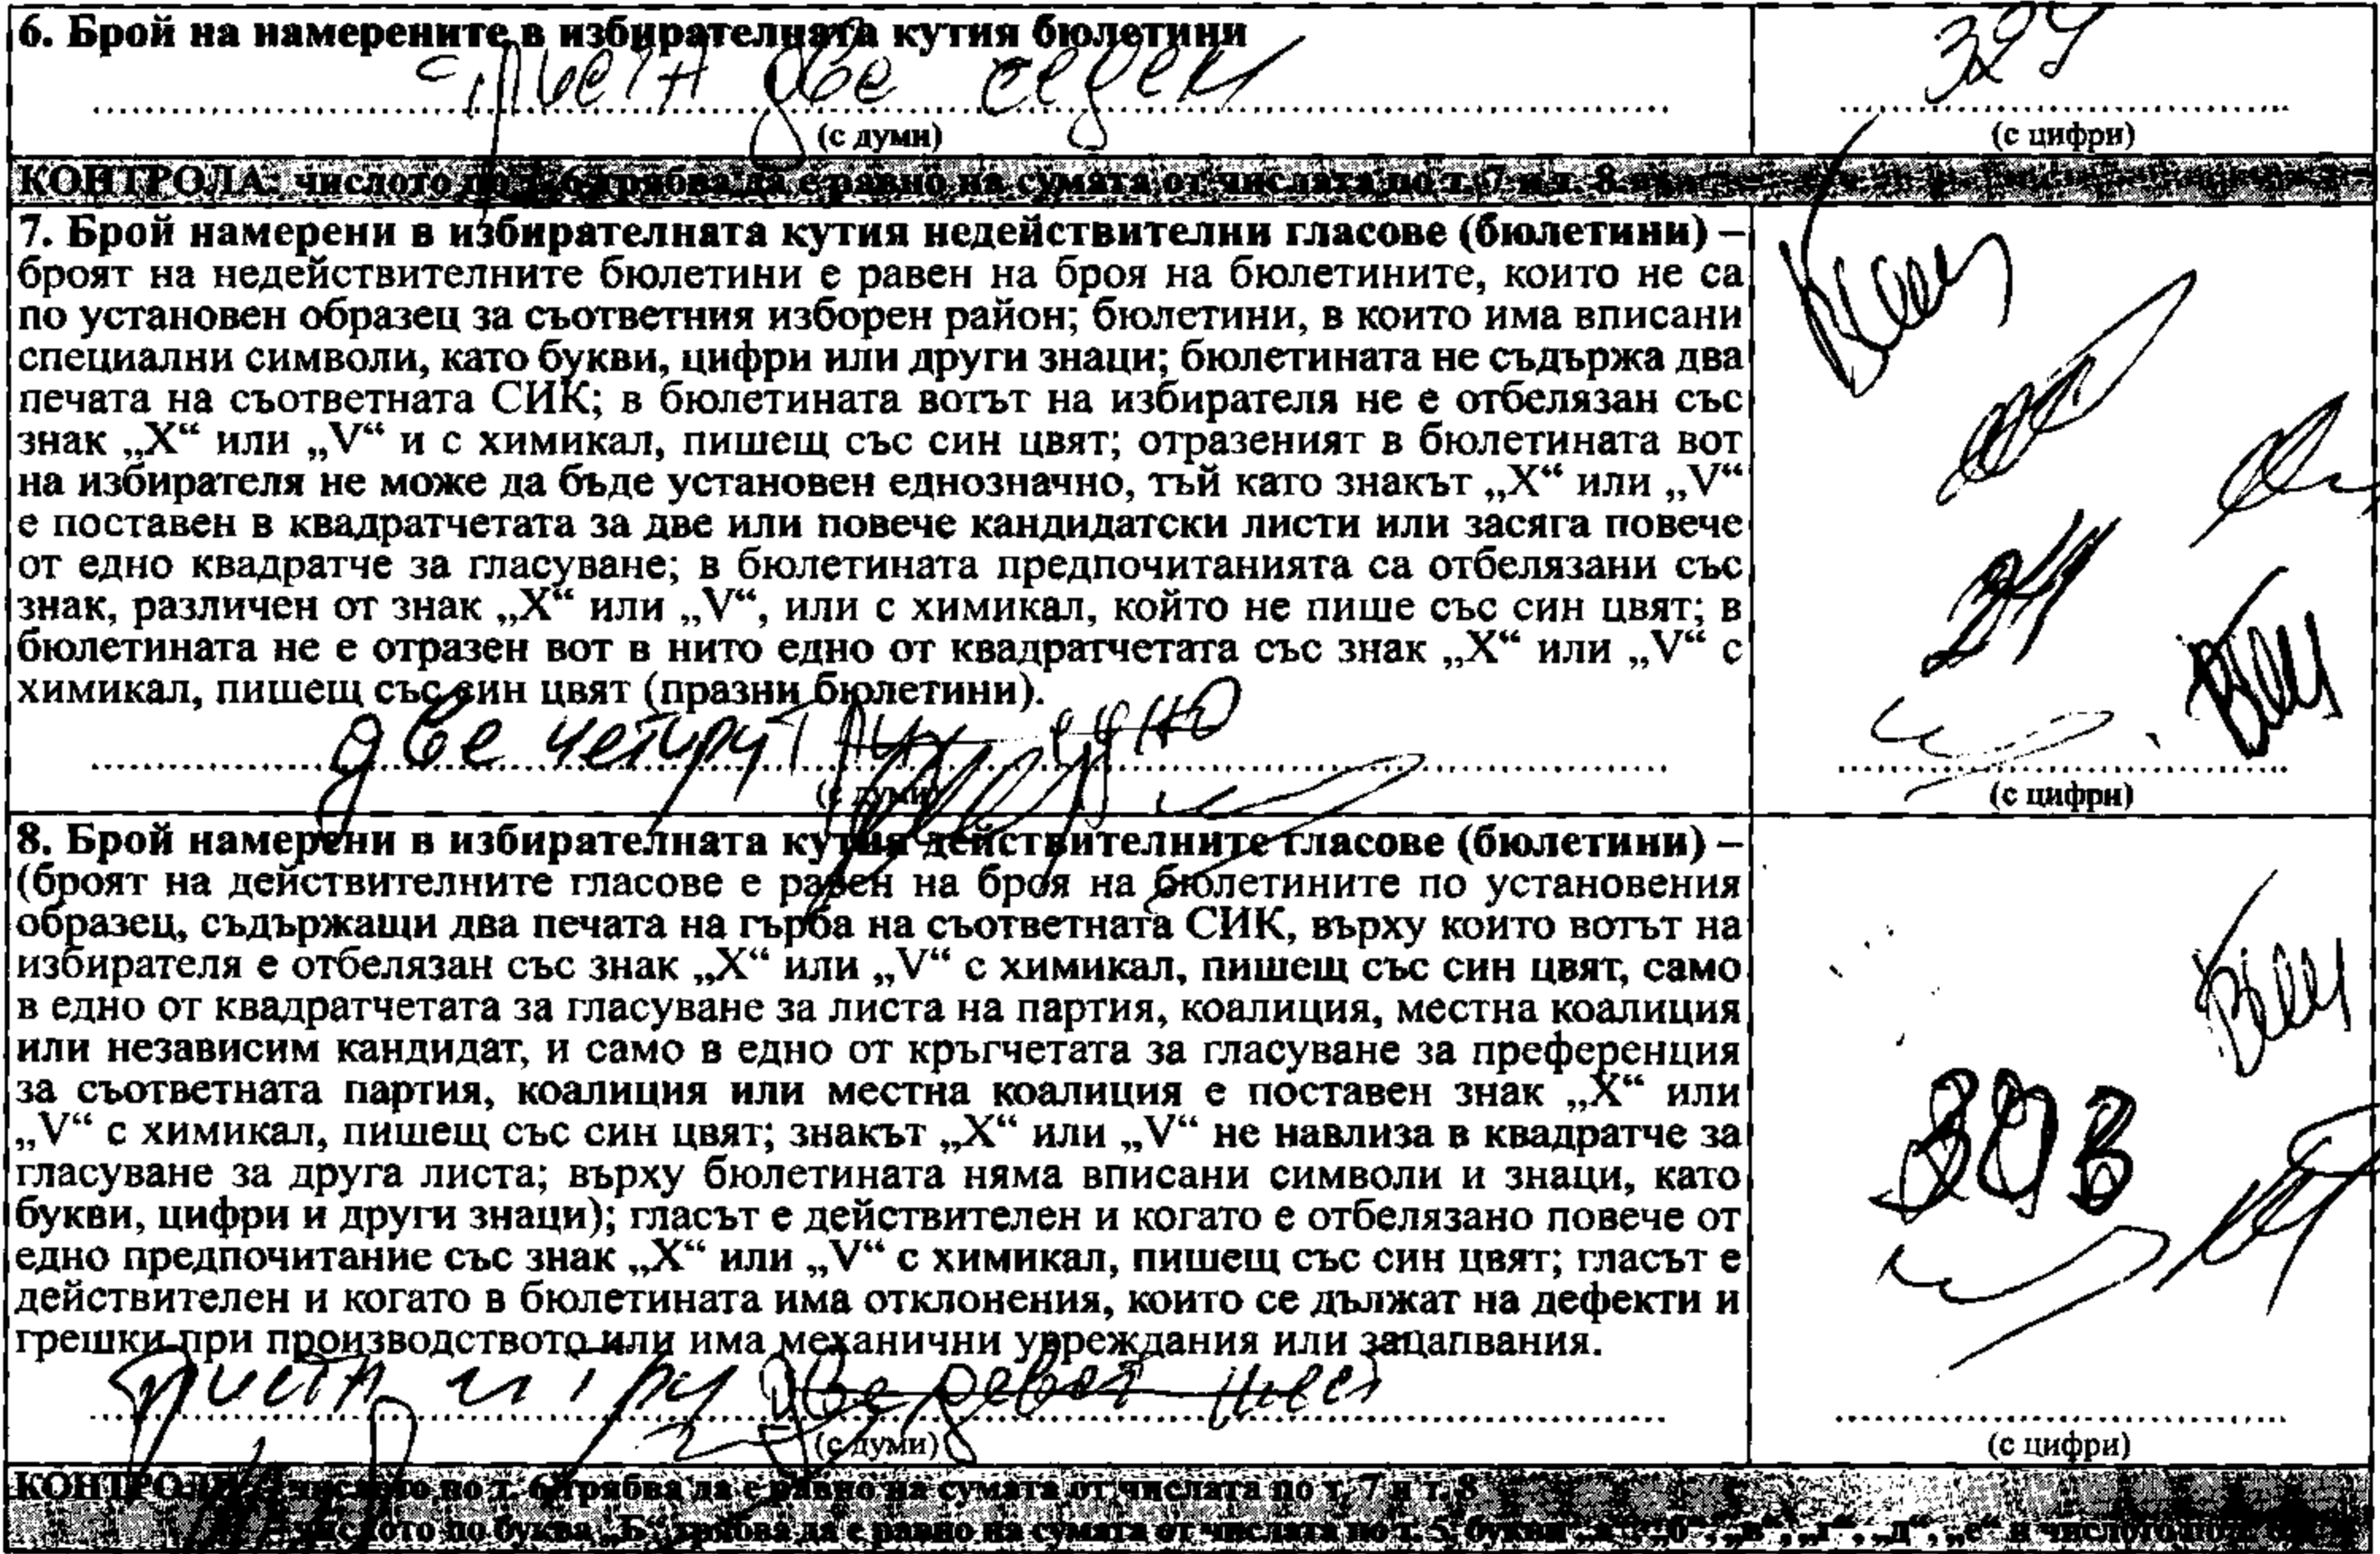 6. Брой на намерените в избирателната кутия бюлетини
две седем
327
(с думи)
(с цифри)
КОНТРОЛА: числото по т. 6 трябва да е равно на сумата от числата по т. 7 и т. 8
7. Брой намерени в избирателната кутия недействителни гласове (бюлетини) –
броят на недействителните бюлетини е равен на броя на бюлетините, които не са
по установен образец за съответния изборен район; бюлетини, в които има вписани
специални символи, като букви, цифри или други знаци; бюлетината не съдържа два
печата на съответната СИК; в бюлетината вотът на избирателя не е отбелязан със
знак „X“ или „V“ и с химикал, пишещ със син цвят; отразеният в бюлетината вот
на избирателя не може да бъде установен еднозначно, тъй като знакът „X“ или „V“
е поставен в квадратчетата за две или повече кандидатски листи или засяга повече
от едно квадратче за гласуване; в бюлетината предпочитанията са отбелязани със
знак, различен от знак „X“ или „V“, или с химикал, който не пише със син цвят; в
бюлетината не е отразен вот в нито едно от квадратчетата със знак „X“ или „V“ с
химикал, пишещ със син цвят (празни бюлетини).
24
две четири едно
(с думи)
(с цифри)
8. Брой намерени в избирателната кутия действителните гласове (бюлетини) –
(броят на действителните гласове е равен на броя на бюлетините по установения
образец, съдържащи два печата на гърба на съответната СИК, върху които вотът на
избирателя е отбелязан със знак „X“ или „V“ с химикал, пишещ със син цвят, само
в едно от квадратчетата за гласуване за листа на партия, коалиция, местна коалиция
или независим кандидат, и само в едно от кръгчетата за гласуване за преференция
за съответната партия, коалиция или местна коалиция е поставен знак „X“ или
„V“ с химикал, пишещ със син цвят; знакът „X“ или „V“ не навлиза в квадратче за
гласуване за друга листа; върху бюлетината няма вписани символи и знаци, като
букви, цифри и други знаци); гласът е действителен и когато е отбелязано повече от
едно предпочитание със знак „X“ или „V“ с химикал, пишещ със син цвят; гласът е
действителен и когато в бюлетината има отклонения, които се дължат на дефекти и
грешки при производството или има механични увреждания или зацапвания.
303
и три две девет шест
(с думи)
(с цифри)
КОНТРОЛИ: числото по т. 6 трябва да е равно на сумата от числата по т. 7 и т. 8
числото по буква „Б“ трябва да е равно на сумата от числата по т. 5, букви „а“, „б“, „в“, „г“, „д“, „е“ и числото по т. 6